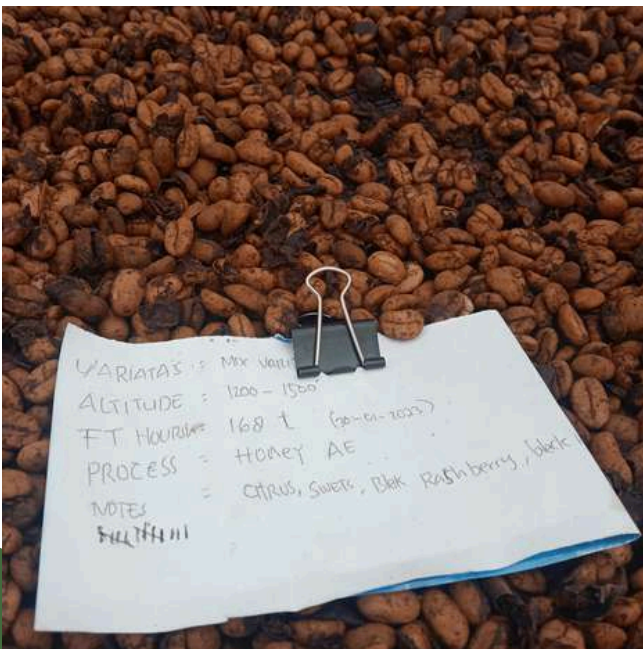 VARIATAS : MIX VARI
ALTITUDE : 1200 - 1500
FT HOURS : 168 (30-01-2023)
PROCESS : HONEY AE
NOTES : CITRUS, SWETS, Blak Rashberry, black